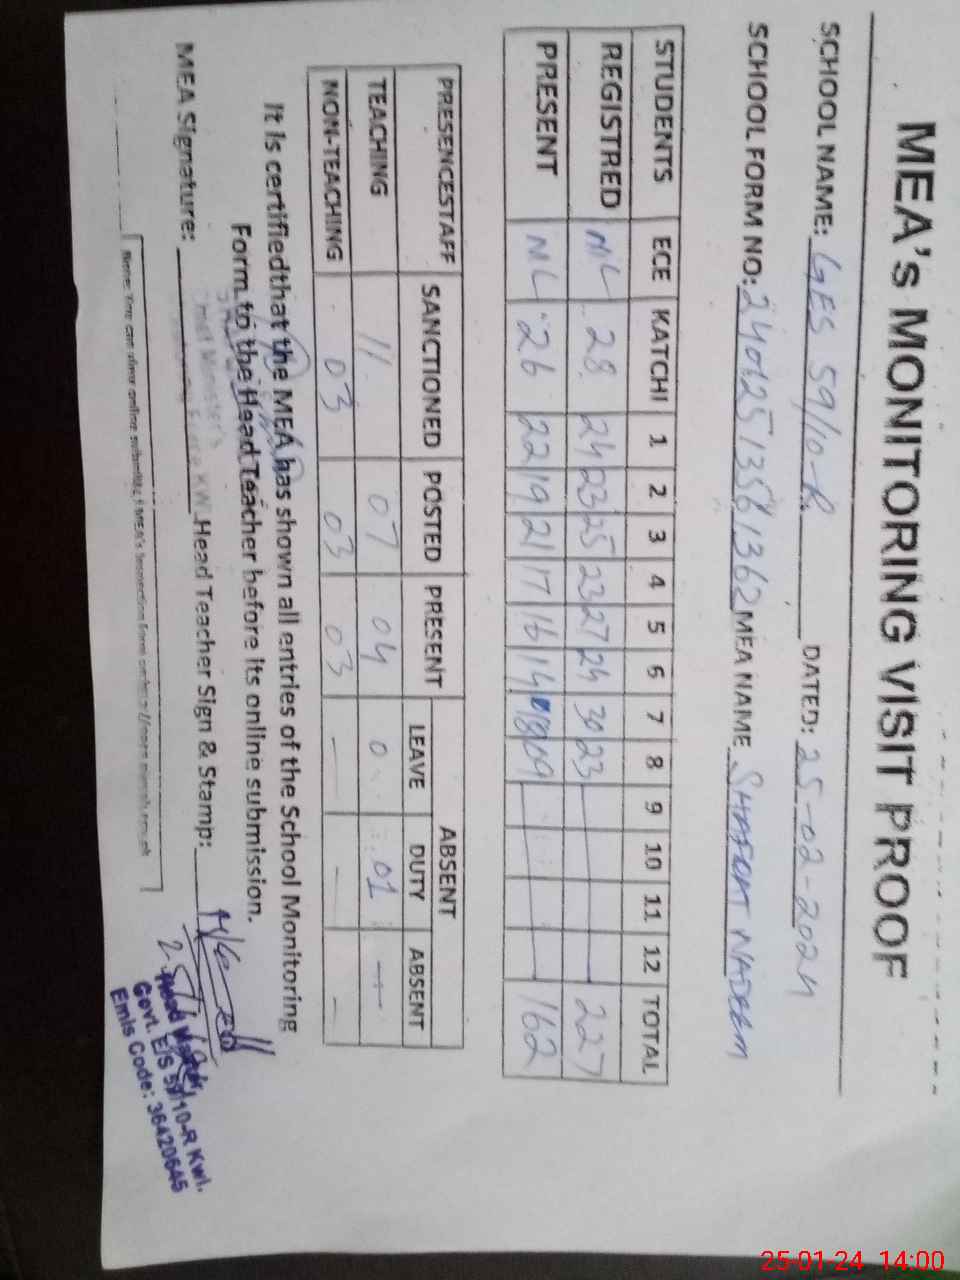 MEA's MONITORING VISIT PROOF
SCHOOL NAME: GES 59/10-R DATED: 25-02-2024
SCHOOL FORM NO: 24012513581362 MEA NAME SHAFQAT NADEEM
STUDENTS ECE KATCHI 1 2 3 4 5 6 7 8 9 10 11 12 TOTAL
REGISTRED NIL 28 24 23 25 23 27 24 30 23 227
PRESENT NIL 26 22 19 21 17 16 14 18 09 162
PRESENCESTAFF SANCTIONED POSTED PRESENT ABSENT
LEAVE DUTY ABSENT
TEACHING 11 07 04 0 01 —
NON-TEACHING 03 03 03 — — —
It is certifiedthat the MEA has shown all entries of the School Monitoring
Form to the Head Teacher before its online submission.
MEA Signature: Head Teacher Sign & Stamp:
Chief Minister's
KWL
Head Master
Govt. E/S 59/10-R Kwl.
Emis Code: 36420645
25-01-24 14:00